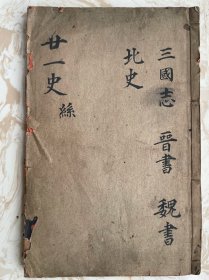 三國志 晉書 魏書
北史
廿一史 絲